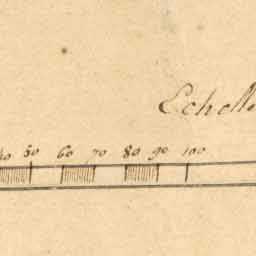 Echelle
40 50 60 70 80 90 100